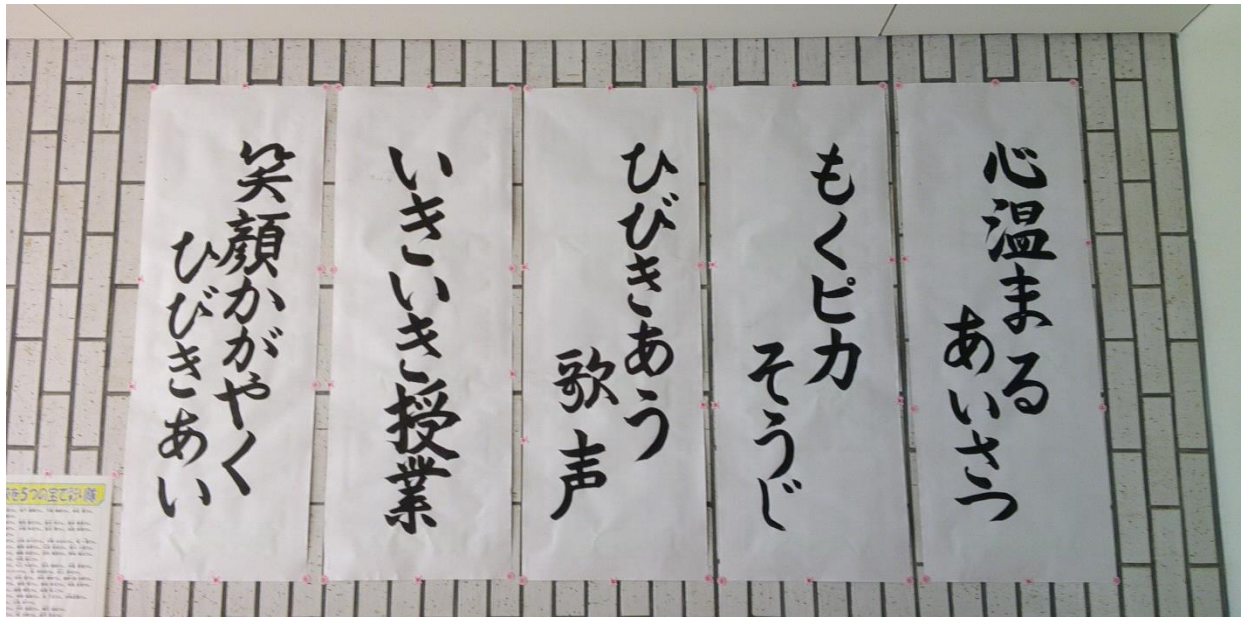 心温まる
あいさつ
もくピカ
そうじ
ひびきあう
歌声
いきいき授業
笑顔かがやく
ひびきあい
を5つの宝で彩り隊